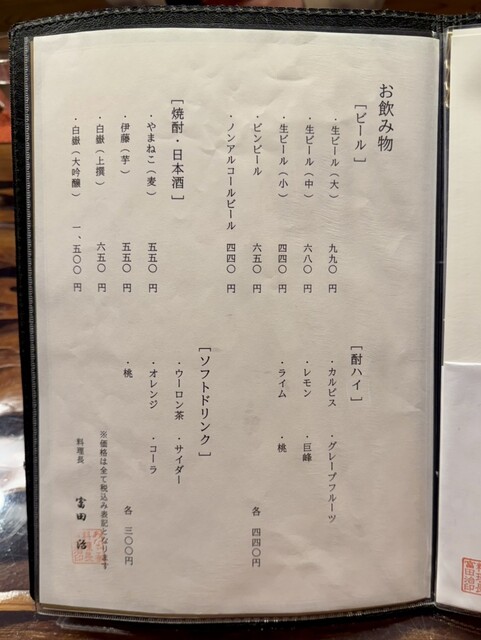 お飲み物
[ビール]
・生ビール（大） 九九〇円
・生ビール（中） 六八〇円
・生ビール（小） 四四〇円
・ビンビール 六五〇円
・ノンアルコールビール 四四〇円
[焼酎・日本酒]
・やまねこ（麦） 五五〇円
・伊藤（芋） 五五〇円
・白嶽（上撰） 六五〇円
・白嶽（大吟醸） 一、五〇〇円
[酎ハイ]
・カルピス ・グレープフルーツ
・レモン ・巨峰
・ライム ・桃
各 四四〇円
[ソフトドリンク]
・ウーロン茶 ・サイダー
・オレンジ ・コーラ
・桃
各 三〇〇円
※価格は全て税込み表記となります
料理長 富田 治